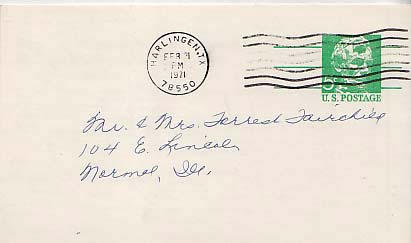 HARLINGEN, TX
FEB
PM
1971
78550
U.S. POSTAGE
Mr. & Mrs. Forrest Fairchild
104 E. Lincoln
Normal, Ill.